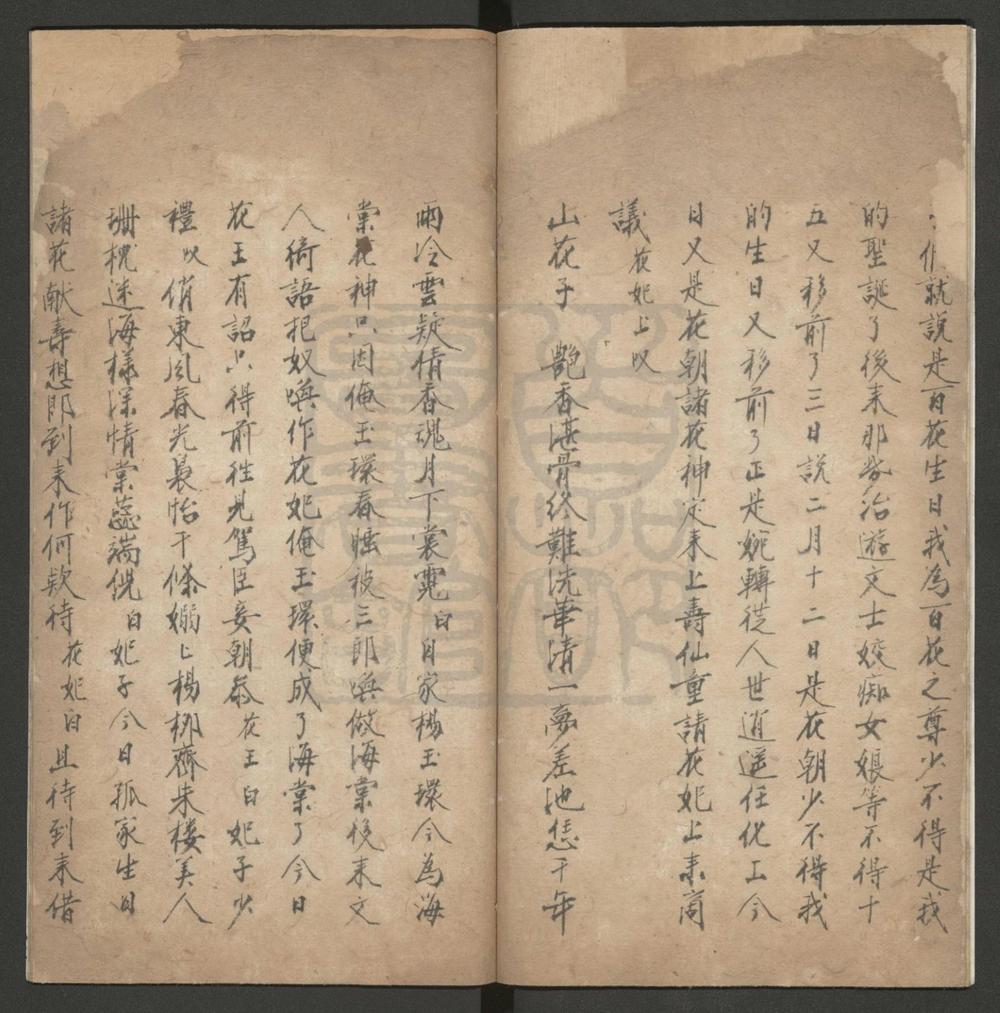 就說是百花生日我為百花之尊少不得是我
的聖誕了後来那些冶遊文士姣痴女娘等不得十
五又移前了三日說二月十二日是花朝少不得我
的生日又移前了正是婉轉従人世逍遥任化工今
日又是花朝諸花神定来上壽仙童請花妃上来商
議花妃上以
山花子　艶香湛骨終難洗華清一夢差池恁千年
雨冷雲凝倩香魂月下裳霓白自家楊玉環今為海
棠花神只因俺玉環春睡被三郎喚做海棠後来文
人綺語把奴喚作花妃俺玉環便成了海棠了今日
花王有詔只得前徃見駕臣妾朝叅花王白妃子少
禮以俏東風春光最怡千條嫋上楊柳齊朱楼美人
珊枕迷海樣深情棠蕊端倪白妃子今日孤家生日
諸花献壽想即到来作何欵待花妃白且待到来借